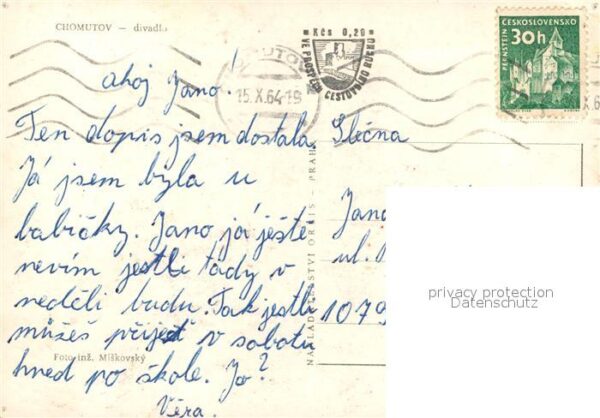 CHOMUTOV — divadlo
Kčs 0,20
VE PROSPĚCH CESTOVNÍHO RUCHU
15.X.64-19
ČESKOSLOVENSKO
30h
PERNŠTEJN
ahoj Jano!
Ten dopis jsem dostala.
Já jsem byla u
babičky. Jano já ještě
nevím jestli tady v
neděli budu. Tak jestli
můžeš přijet v sobotu
hned po škole. Jo?
Věra.
Foto inž. Míškovský
NAKLADATELSTVÍ ORBIS - PRAHA
Slečna
Jan
ul.
1079
privacy protection
Datenschutz